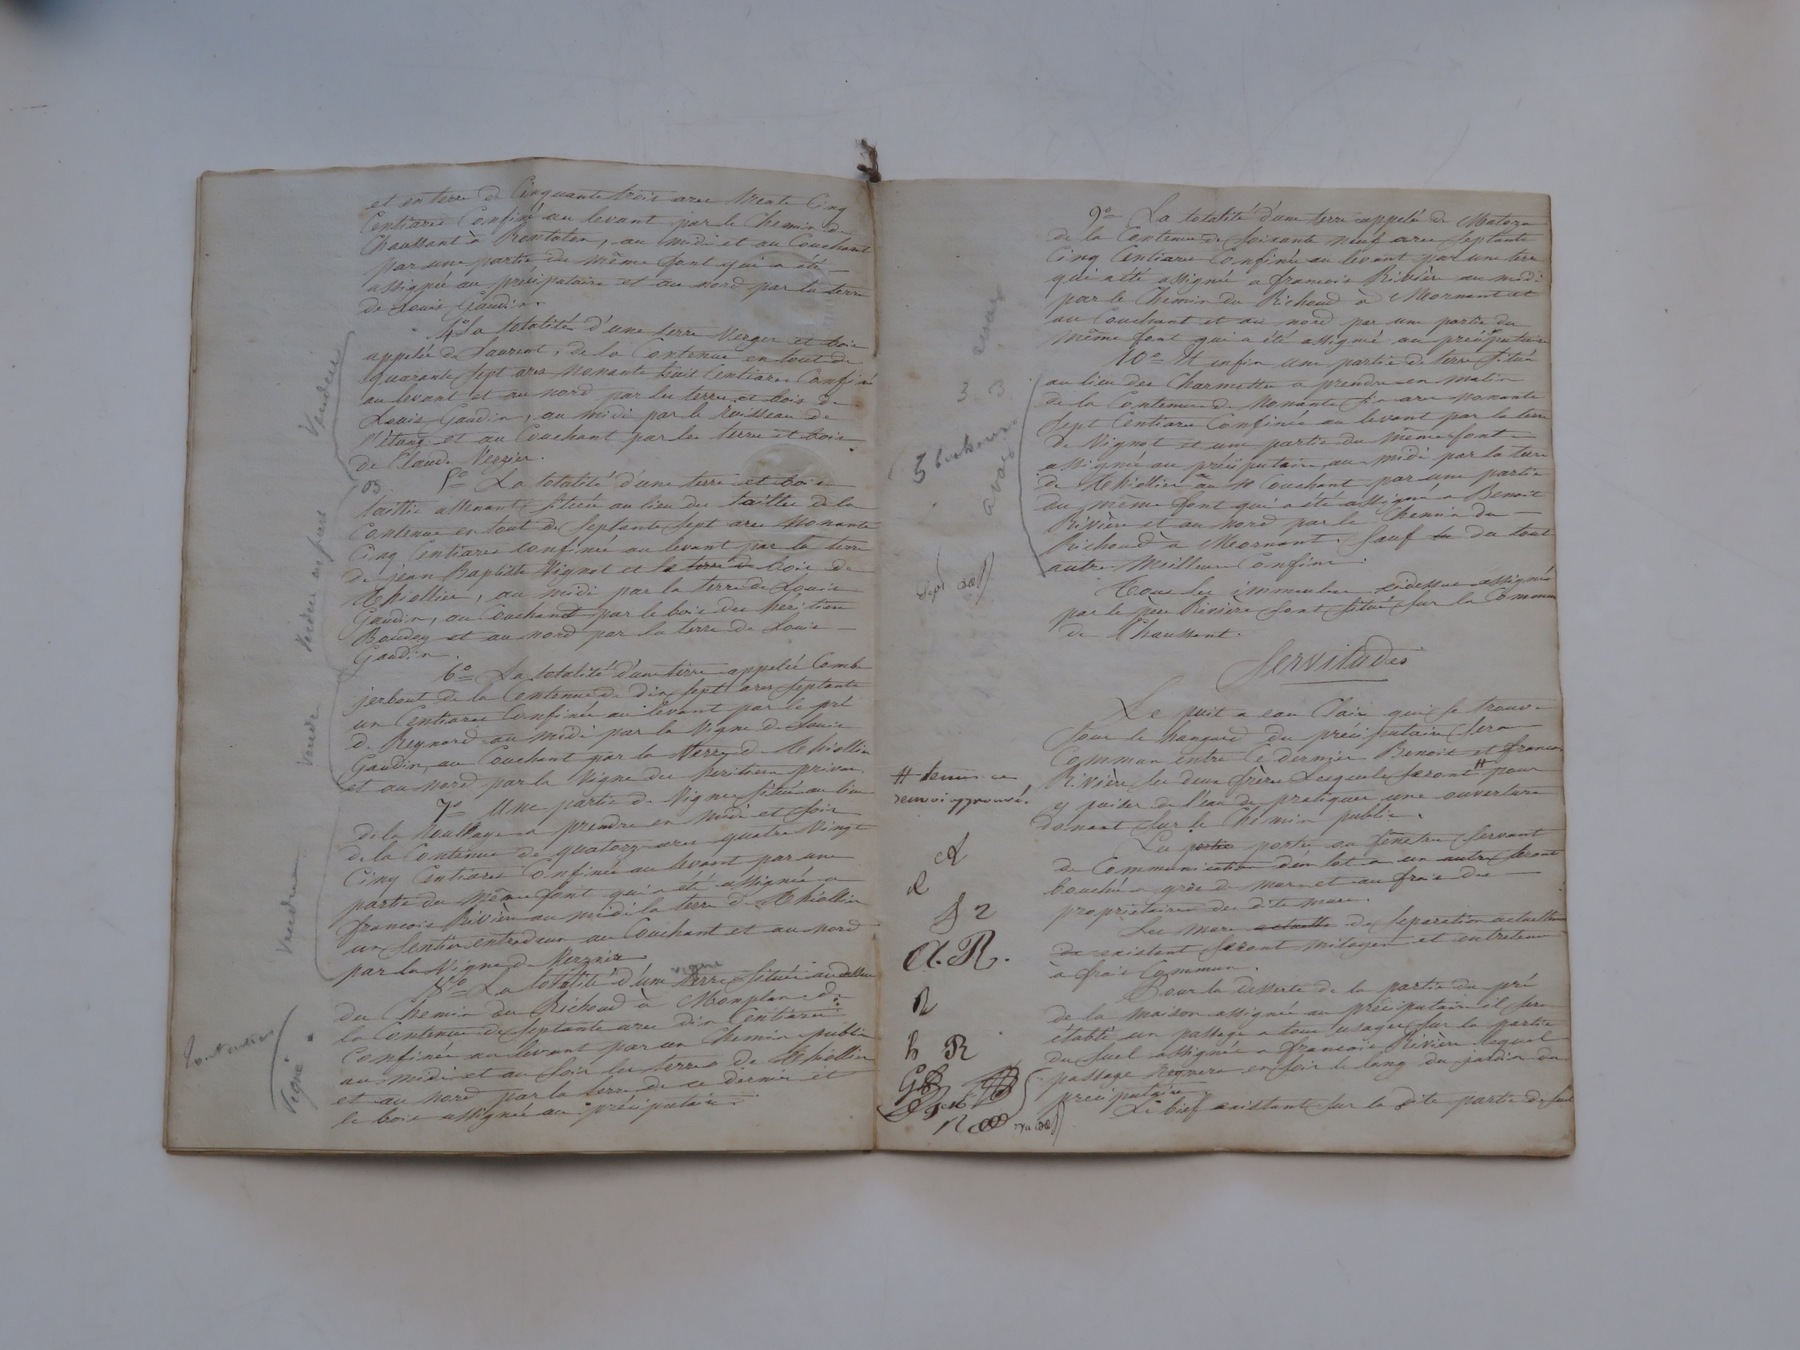 et en terre de Cinquante trois ares trente Cinq
Centiares Confiné au levant par le Chemin de
Chaussant à Rontalon, au midi et au Couchant
par une partie du même font qui a été
assignée au préciputaire et au nord par la terre
de Louis Gaudin.
4o La totalité d'une terre Verger et bois
appelée de Laurent, de la Contenue en tout de
quarante sept ares Nonante huit Centiares Confiné
au levant et au nord par les terre et bois de
Louis Gaudin, au midi par le Ruisseau de
l'étang et au Couchant par les terre et bois
de Claude Verzier.
5o La totalité d'une terre et bois
taillis attenant, située au lieu des tailles de la
Contenue en tout de Septante Sept ares Nonante
Cinq Centiares confinée au levant par la terre
de jean Baptiste Vignot et le bois de
Thiollier, au midi par la terre de Louis
Gaudin, au Couchant par le bois des héritiers
et au nord par la terre de Louis
Gaudin.
6o La totalité d'une terre appelée Comb
de la Contenue de dix Sept ares Septante
un Centiares Confinée au levant par le pré
de Reynard au midi par la Vigne de Louis
Gaudin, au Couchant par la Terre de Thiollier
et au nord par la Vigne des heritiers
7o Une partie de Vigne située au lieu
de la a prendre en midi et soir
de la Contenue de quatorze ares quatre Vingt
Cinq Centiares Confinée au levant par une
partie du même font qui a été assignée a
françois Rivière au midi la terre de Thiollier
un Sentier entredeux au Couchant et au nord
par la Vigne de Verzier
8o La totalité d'une terre située au dessus
vigne
du Chemin du Richoud à Monplan de
la Contenue de Septante ares dix Centiares
Confinée au levant par un Chemin public
au midi et au Soir les terres de Thiollier
et au nord par la terre de ce dernier et
le bois assignée au préciputaire.
Vendue
Vendue
Vendue
Vendue
Vigne
9o La totalité d'une terre appelée de
de la Contenue de Soixante neuf ares Septante
Cinq Centiares Confinée au levant par une terre
qui a été assignée a françois Rivière au midi
par le Chemin du Richoud à Mornant et
au Couchant et au nord par une partie du
même font qui a été assigné au préciputaire
10o Et enfin une partie de terre située
au lieu des Charmettes a prendre en matin
de la Contenue de Nonante Six ares Nonante
Sept Centiares Confinée au levant par la terre
de Vignot et une partie du même font
assignée au préciputaire au midi par la terre
de Thiollier au Couchant par une partie
du même font qui a été assigné a Benoit
Rivière et au nord par le Chemin du
Richoud à Mornant. Sauf du tout
autre Meilleur Confins.
Tous les immeubles cidessus assignés
par le père Rivière sont situés sur la Commune
de Chaussant.
Servitudes
Le puit a eau Clair qui se trouve
Sous le hangard du préciputaire sera
Commun entre Ce dernier Benoit et françois
Rivière les deux frères Lesquels seront # pour
y puiser de l'eau de pratiquer une ouverture
donnant sur le Chemin public.
La porte ou fenêtre Servant
de Communication d'un lot a un autre Seront
bouchés a grès de mur et au frais des
proprietaires des dits murs.
Les murs actuelle de séparation actuellem
existant Seront mitoyen et entretenu
à frais Commun.
Pour la desserte de la partie du pré
de la maison assignée au préciputaire il sera
établi un passage a tous usages sur la partie
du Suel assignée a françois Rivière lequel
passage Regnera en soir le long du jardin du
préciputaire
Le bief existant sur la dite partie de Suel
# tenus
renvoi approuvé.
A. R.
R